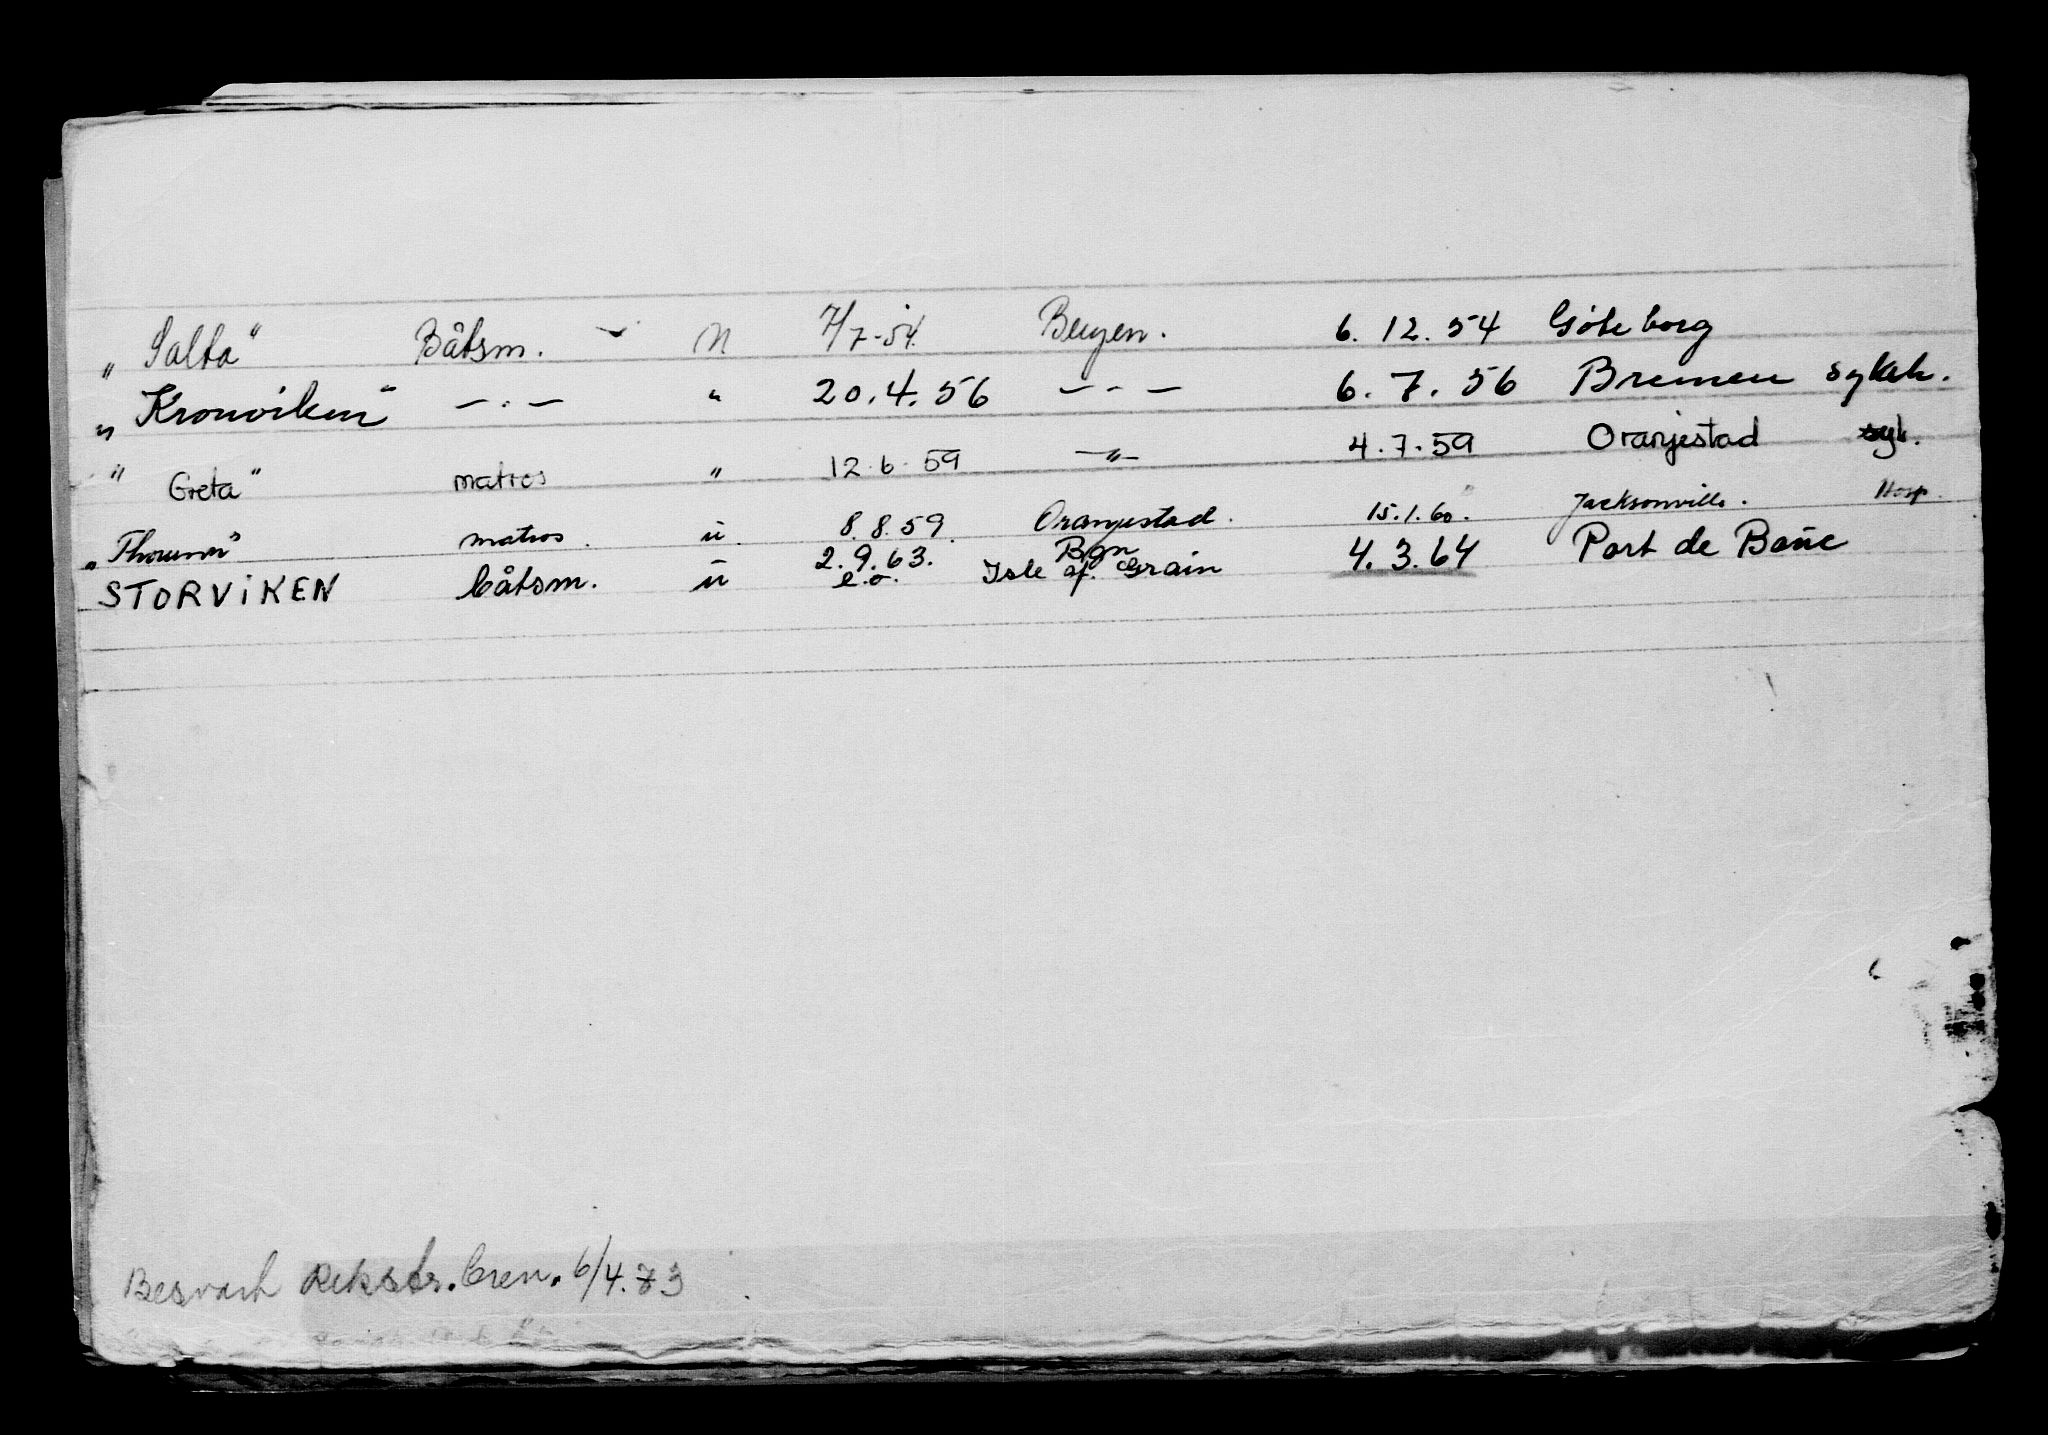 „ Salta" Båtsm. N 7/7-54. Bergen. 6.12.54 Göteborg
„ Kronviken" —.— " 20.4.56 — - — 6.7.56 Bremen sykeh.
" Greta" matros " 12.6.59 —"— 4.7.59 Oranjestad syk.
„Thorunn" matros. ü. 8.8.59. Oranjestad. 15.1.60. Jacksonville. Hosp.
STORViKEN båtsm. ü 2.9.63. Bgn 4.3.64 Port de Bouc
e.o. Isle of. Grain
Besvart Rikstr. Gren. 6/4.73